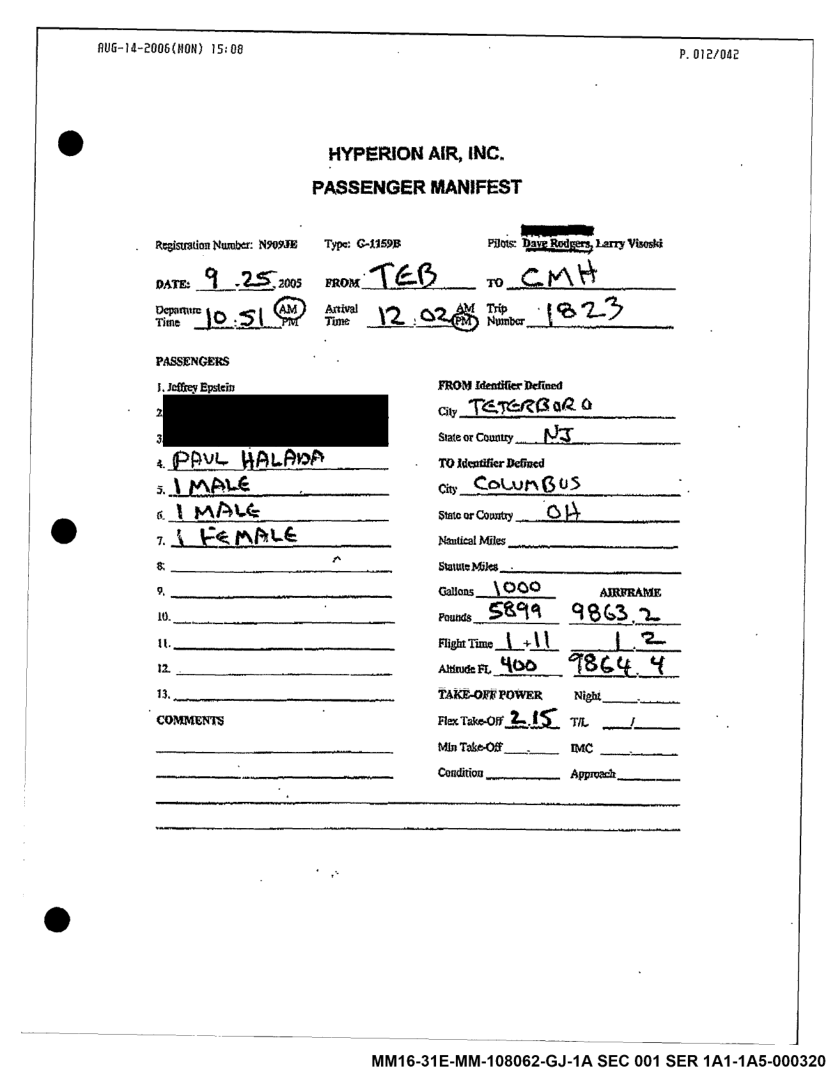 AUG-14-2006(MON) 15:08 P.012/042
HYPERION AIR, INC.
PASSENGER MANIFEST
Registration Number: N909JE Type: G-1159B Pilots: Dave Rodgers, Larry Visoski
DATE: 9 .25, 2005 FROM TEB TO CMH
Departure Time 10:51 AM PM Arrival Time 12:02 AM PM Trip Number 1823
PASSENGERS
1. Jeffrey Epstein
2
3
4. PAUL HALADA
5. 1 MALE
6. 1 MALE
7. 1 FEMALE
8.
9.
10.
11.
12.
13.
COMMENTS
FROM Identifier Defined
City TETERBORO
State or Country NJ
TO Identifier Defined
City COLUMBUS
State or Country OH
Nautical Miles
Statute Miles
Gallons 1000 AIRFRAME
Pounds 5899 9863.2
Flight Time 1+11 1.2
Altitude FL 400 9864.4
TAKE-OFF POWER Night
Flex Take-Off 2.15 T/L /
Min Take-Off IMC
Condition Approach
MM16-31E-MM-108062-GJ-1A SEC 001 SER 1A1-1A5-000320